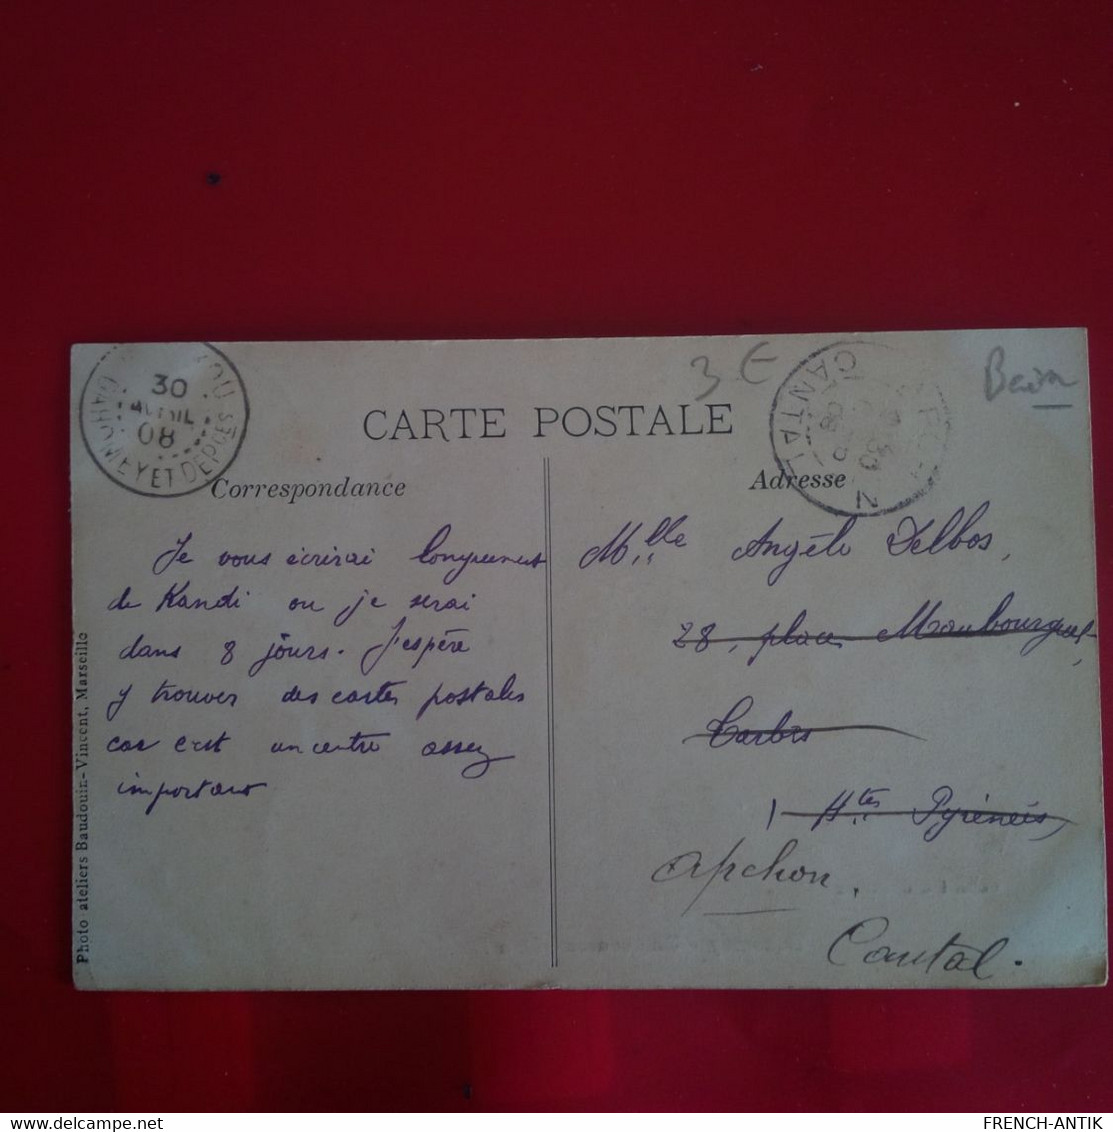 3 €
Benin
30
AVRIL
08
DAHOMEY ET DEPCES
CANTAL
CARTE POSTALE
Correspondance
Adresse
Je vous écrirai longuement
de Kandi ou je serai
dans 8 jours. J'espère
y trouver des cartes postales
car c'est un centre assez
important
Mlle Angèle Delbos,
28, place Maubourguet,
Tarbes
Htes Pyrénées,
Apchon,
Cantal.
Photo ateliers Baudouin-Vincent, Marseille
FRENCH-ANTIK